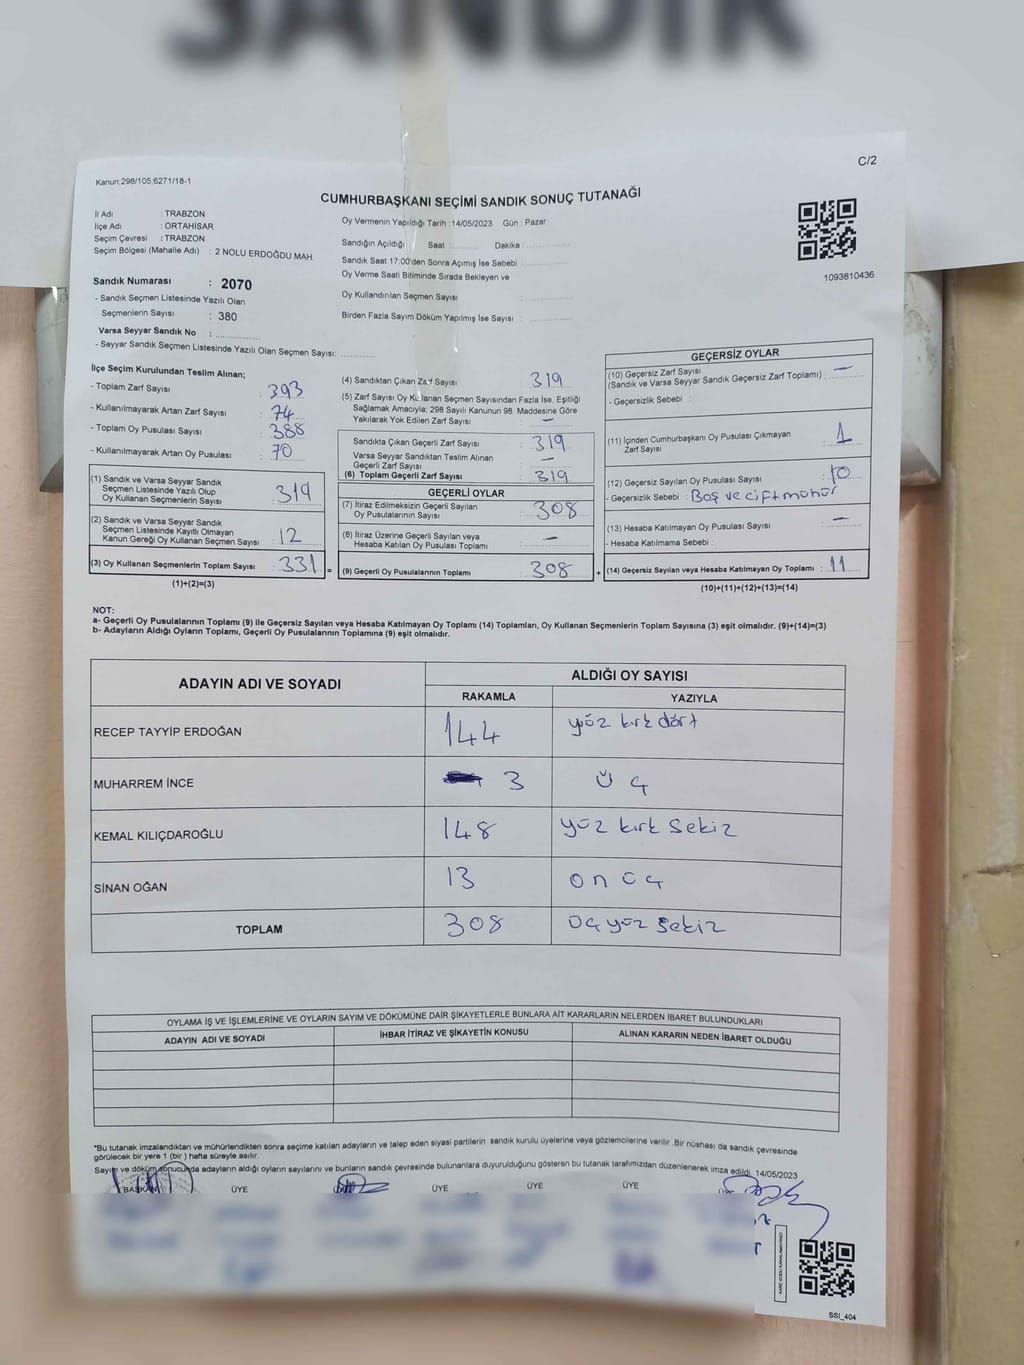 SANDIK
C/2
Kanun;298/105;6271/18-1
CUMHURBAŞKANI SEÇİMİ SANDIK SONUÇ TUTANAĞI
1093810436
İl Adı : TRABZON
İlçe Adı : ORTAHİSAR
Seçim Çevresi : TRABZON
Seçim Bölgesi (Mahalle Adı) : 2 NOLU ERDOĞDU MAH.
Sandık Numarası : 2070
- Sandık Seçmen Listesinde Yazılı Olan
Seçmenlerin Sayısı : 380
Varsa Seyyar Sandık No :
- Seyyar Sandık Seçmen Listesinde Yazılı Olan Seçmen Sayısı:
Oy Vermenin Yapıldığı Tarih : 14/05/2023 Gün : Pazar
Sandığın Açıldığı Saat Dakika :
Sandık Saat 17:00'den Sonra Açımış İse Sebebi :
Oy Verme Saati Bitiminde Sırada Bekleyen ve
Oy Kullandırılan Seçmen Sayısı :
Birden Fazla Sayım Döküm Yapılmış İse Sayısı :
İlçe Seçim Kurulundan Teslim Alınan;
- Toplam Zarf Sayısı : 393
- Kullanılmayarak Artan Zarf Sayısı : 74
- Toplam Oy Pusulası Sayısı : 388
- Kullanılmayarak Artan Oy Pusulası : 70
(1) Sandık ve Varsa Seyyar Sandık
Seçmen Listesinde Yazılı Olup
Oy Kullanan Seçmenlerin Sayısı : 319
(2) Sandık ve Varsa Seyyar Sandık
Seçmen Listesinde Kayıtlı Olmayan
Kanun Gereği Oy Kullanan Seçmen Sayısı : 12
(3) Oy Kullanan Seçmenlerin Toplam Sayısı : 331 =
(1)+(2)=(3)
(4) Sandıktan Çıkan Zarf Sayısı : 319
(5) Zarf Sayısı Oy Kullanan Seçmen Sayısından Fazla İse, Eşitliği
Sağlamak Amacıyla; 298 Sayılı Kanunun 98. Maddesine Göre
Yakılarak Yok Edilen Zarf Sayısı : —
Sandıkta Çıkan Geçerli Zarf Sayısı : 319
Varsa Seyyar Sandıktan Teslim Alınan
Geçerli Zarf Sayısı : —
(6) Toplam Geçerli Zarf Sayısı : 319
GEÇERLİ OYLAR
(7) İtiraz Edilmeksizin Geçerli Sayılan
Oy Pusulalarının Sayısı : 308
(8) İtiraz Üzerine Geçerli Sayılan veya
Hesaba Katılan Oy Pusulası Toplamı : —
(9) Geçerli Oy Pusulalarının Toplamı : 308 +
GEÇERSİZ OYLAR
(10) Geçersiz Zarf Sayısı
(Sandık ve Varsa Seyyar Sandık Geçersiz Zarf Toplamı) : —
- Geçersizlik Sebebi :
(11) İçinden Cumhurbaşkanı Oy Pusulası Çıkmayan
Zarf Sayısı : 1
(12) Geçersiz Sayılan Oy Pusulası Sayısı : 10
- Geçersizlik Sebebi : Boş ve çift mühür
(13) Hesaba Katılmayan Oy Pusulası Sayısı : —
- Hesaba Katılmama Sebebi :
(14) Geçersiz Sayılan veya Hesaba Katılmayan Oy Toplamı : 11
(10)+(11)+(12)+(13)=(14)
NOT:
a- Geçerli Oy Pusulalarının Toplamı (9) ile Geçersiz Sayılan veya Hesaba Katılmayan Oy Toplamı (14) Toplamları, Oy Kullanan Seçmenlerin Toplam Sayısına (3) eşit olmalıdır. (9)+(14)=(3)
b- Adayların Aldığı Oyların Toplamı, Geçerli Oy Pusulalarının Toplamına (9) eşit olmalıdır.
ADAYIN ADI VE SOYADI ALDIĞI OY SAYISI
RAKAMLA YAZIYLA
RECEP TAYYİP ERDOĞAN 144 yüz kırk dört
MUHARREM İNCE 3 Üç
KEMAL KILIÇDAROĞLU 148 yüz kırk sekiz
SİNAN OĞAN 13 on üç
TOPLAM 308 üç yüz sekiz
OYLAMA İŞ VE İŞLEMLERİNE VE OYLARIN SAYIM VE DÖKÜMÜNE DAİR ŞİKAYETLERLE BUNLARA AİT KARARLARIN NELERDEN İBARET BULUNDUKLARI
ADAYIN ADI VE SOYADI İHBAR İTİRAZ VE ŞİKAYETİN KONUSU ALINAN KARARIN NEDEN İBARET OLDUĞU
*Bu tutanak imzalandıktan ve mühürlendikten sonra seçime katılan adayların ve talep eden siyasi partilerin sandık kurulu üyelerine veya gözlemcilerine verilir .Bir nüshası da sandık çevresinde
görülecek bir yere 1 (bir ) hafta süreyle asılır.
Sayım ve döküm sonucunda adayların aldığı oyların sayılarını ve bunların sandık çevresinde bulunanlara duyurulduğunu gösteren bu tutanak tarafımızdan düzenlenerek imza edildi. 14/05/2023
BAŞKAN ÜYE ÜYE ÜYE ÜYE
SSI_404